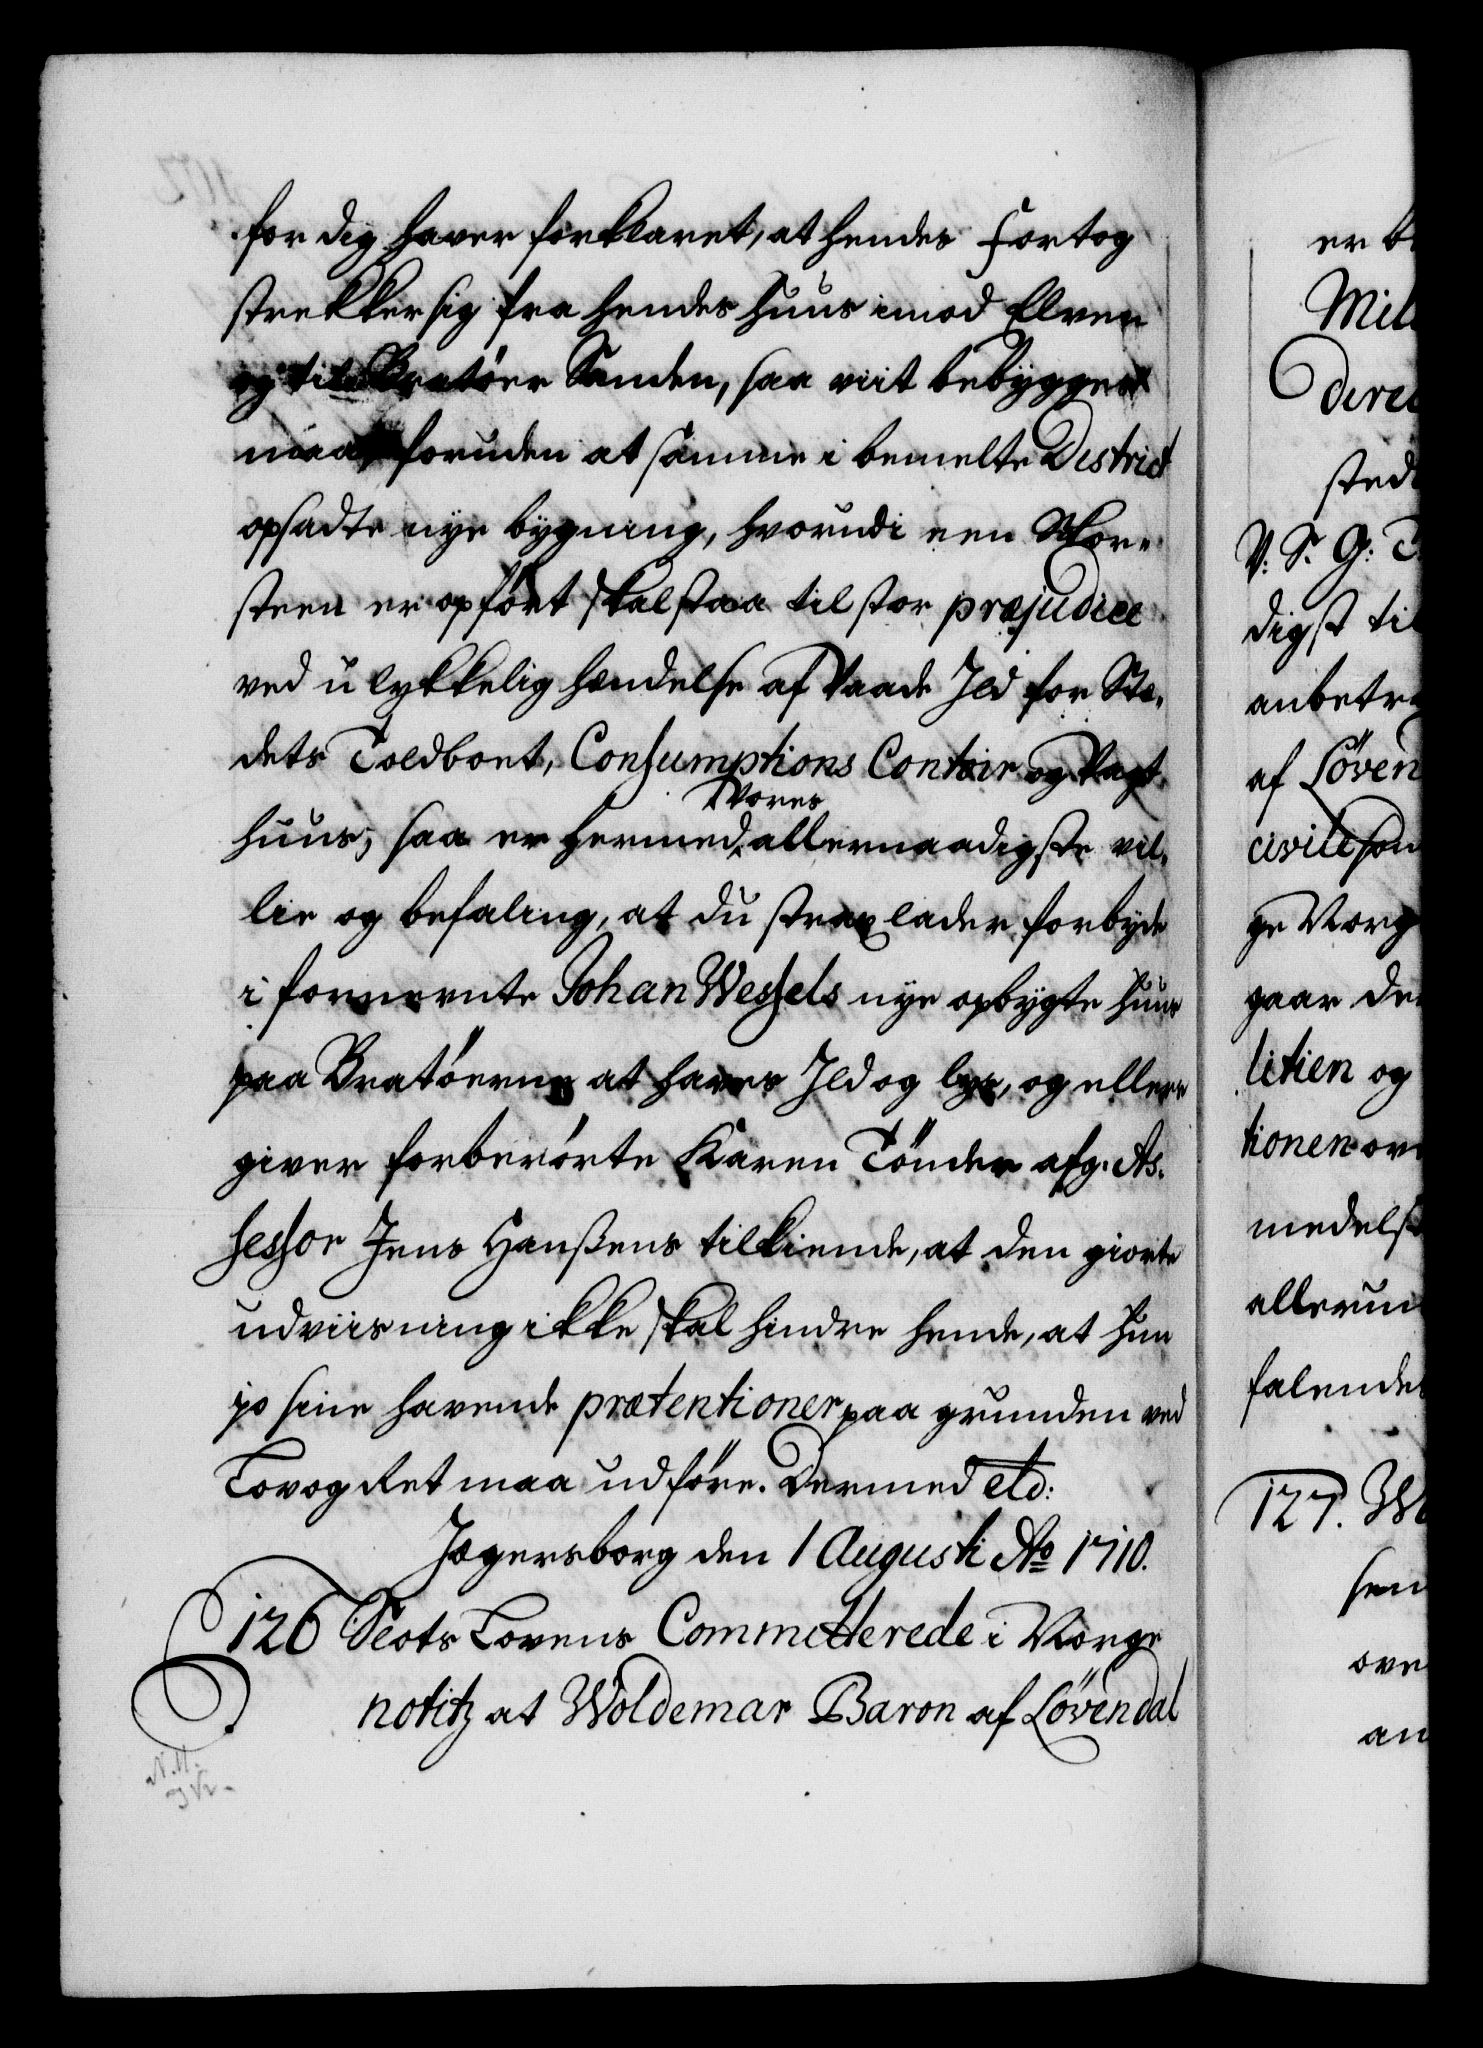 for dig haver forklaret, at hendes Fortog
strekker sig fra hendes huus imod Elven
og til Bratöer Sanden, saa viit bebygges
maa, foruden at samme i bemelte District
opsadte nye bygning, hvorudi een Skor-
steen er opfört skal staa til stor præjudice
ved ulykkelig hendelse af Vaade Jld for Stæ-
dets Toldboet, Consumptions Contoir og Vagt
Vores
huus; saa er hermed allernaadigste vil-
lie og befaling, at du strax lader forbyde
i fornevnte Johan Wessels nye opbygte huus
paa Bratöerne at haves Jld og lys, og ellers
giver forberörte Karen Tönder afg. As-
sessor Jens Hanßens tilkiende, at den giorte
udviisning ikke skal hindre hende, at hun
jo sine havende prætentioner paa grunden ved
Lov og Ret maa udföre. Dermed etc:
Jægersborg den 1 Augusti Ao 1710.
126 Slots Lovens Committerede i Norge
notitz at Woldemar Baron af Lövendal
N.M.
er
Mil
direc
sted
V: S. G: T
digst til
anbetr
af Löven
civile son
ge Norg
gaar de
litien og
tionen ov
medelst
allerun
falendes
127. W
sen
ove
an